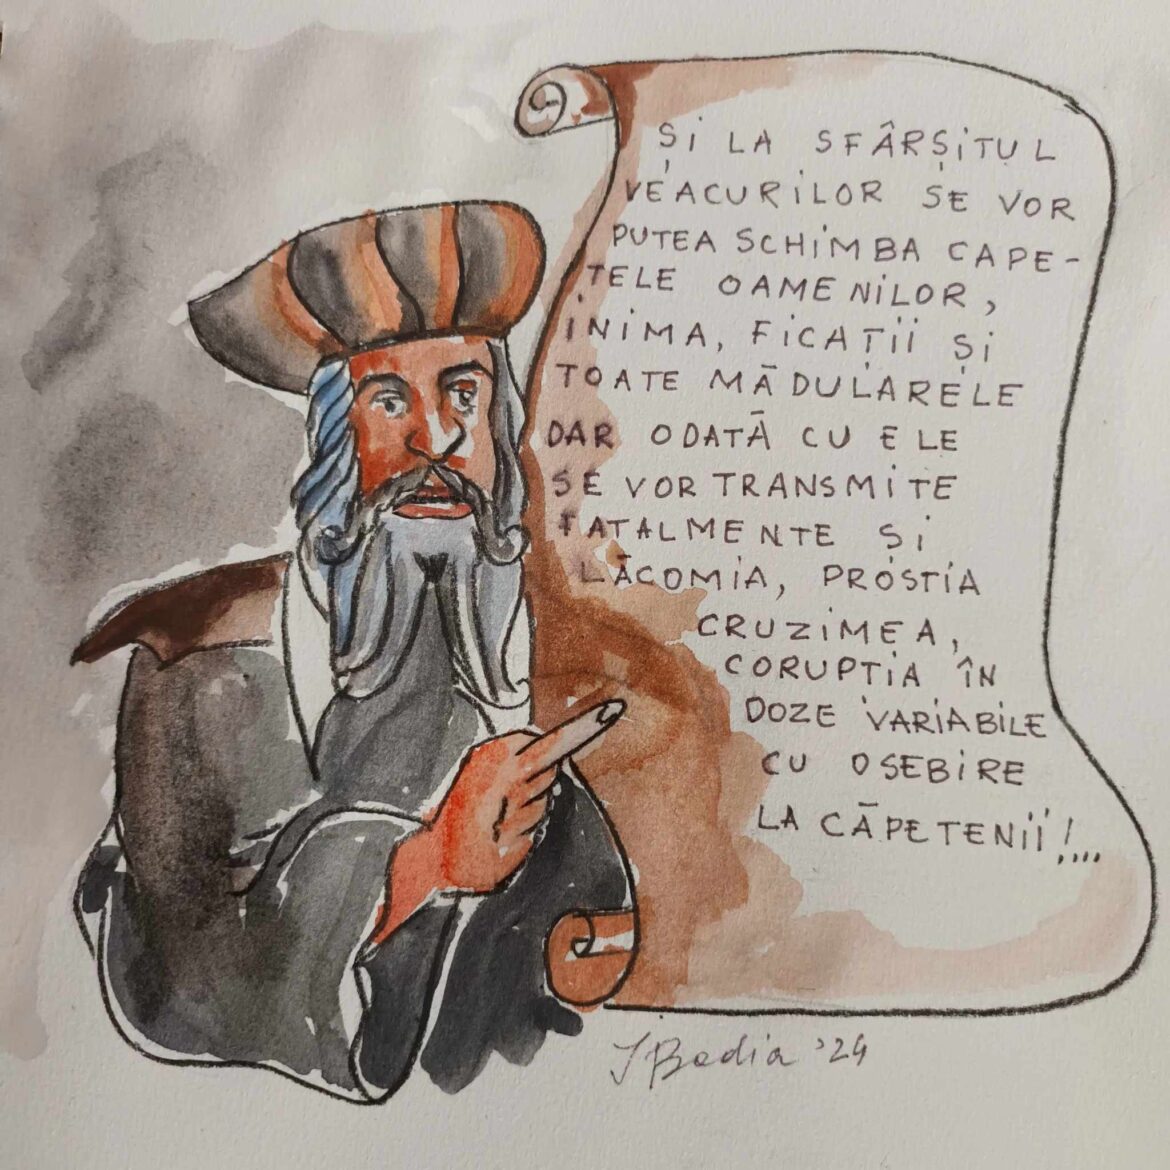 ȘI LA SFÂRȘITUL
VEACURILOR SE VOR
PUTEA SCHIMBA CAPE-
TELE OAMENILOR,
INIMA, FICAȚII ȘI
TOATE MĂDULARELE
DAR ODATĂ CU ELE
SE VOR TRANSMITE
FATALMENTE ȘI
LĂCOMIA, PROSTIA
CRUZIMEA,
CORUPTIA ÎN
DOZE VARIABILE
CU OSEBIRE
LA CĂPETENII!...
I Bedia '24